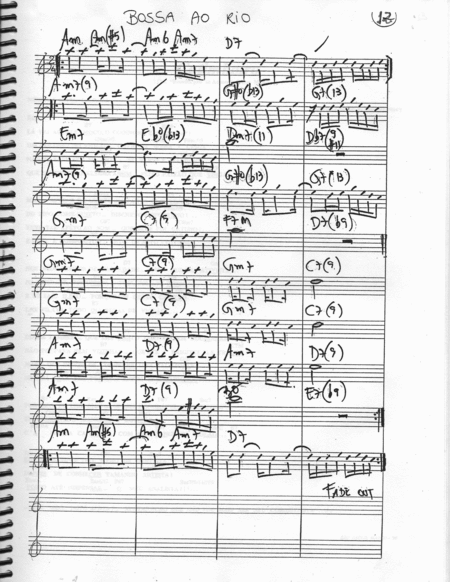 BOSSA AO RIO 12
Am Am(#5) Am6 Am7 D7
Am7(9) G#º(b13) G7(13)
Em7 Ebº(b13) Dm7(11) Db7(9 #11)
Am7(9) G#º(b13) G7(13)
Gm7 C7(9) F7M D7(b9)
Gm7 C7(9) Gm7 C7(9)
Gm7 C7(9) Gm7 C7(9)
Am7 D7(9) Am7 D7(9)
Am7 D7(9) E7(b9)
Am Am(#5) Am6 Am7 D7
FADE OUT